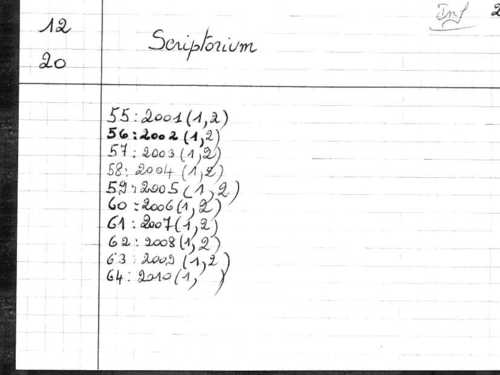 12
20
Scriptorium
Inf 2
55:2001(1,2)
56:2002(1,2)
57:2003(1,2)
58:2004(1,2)
59:2005(1,2)
60:2006(1,2)
61:2007(1,2)
62:2008(1,2)
63:2009(1,2)
64:2010(1, )